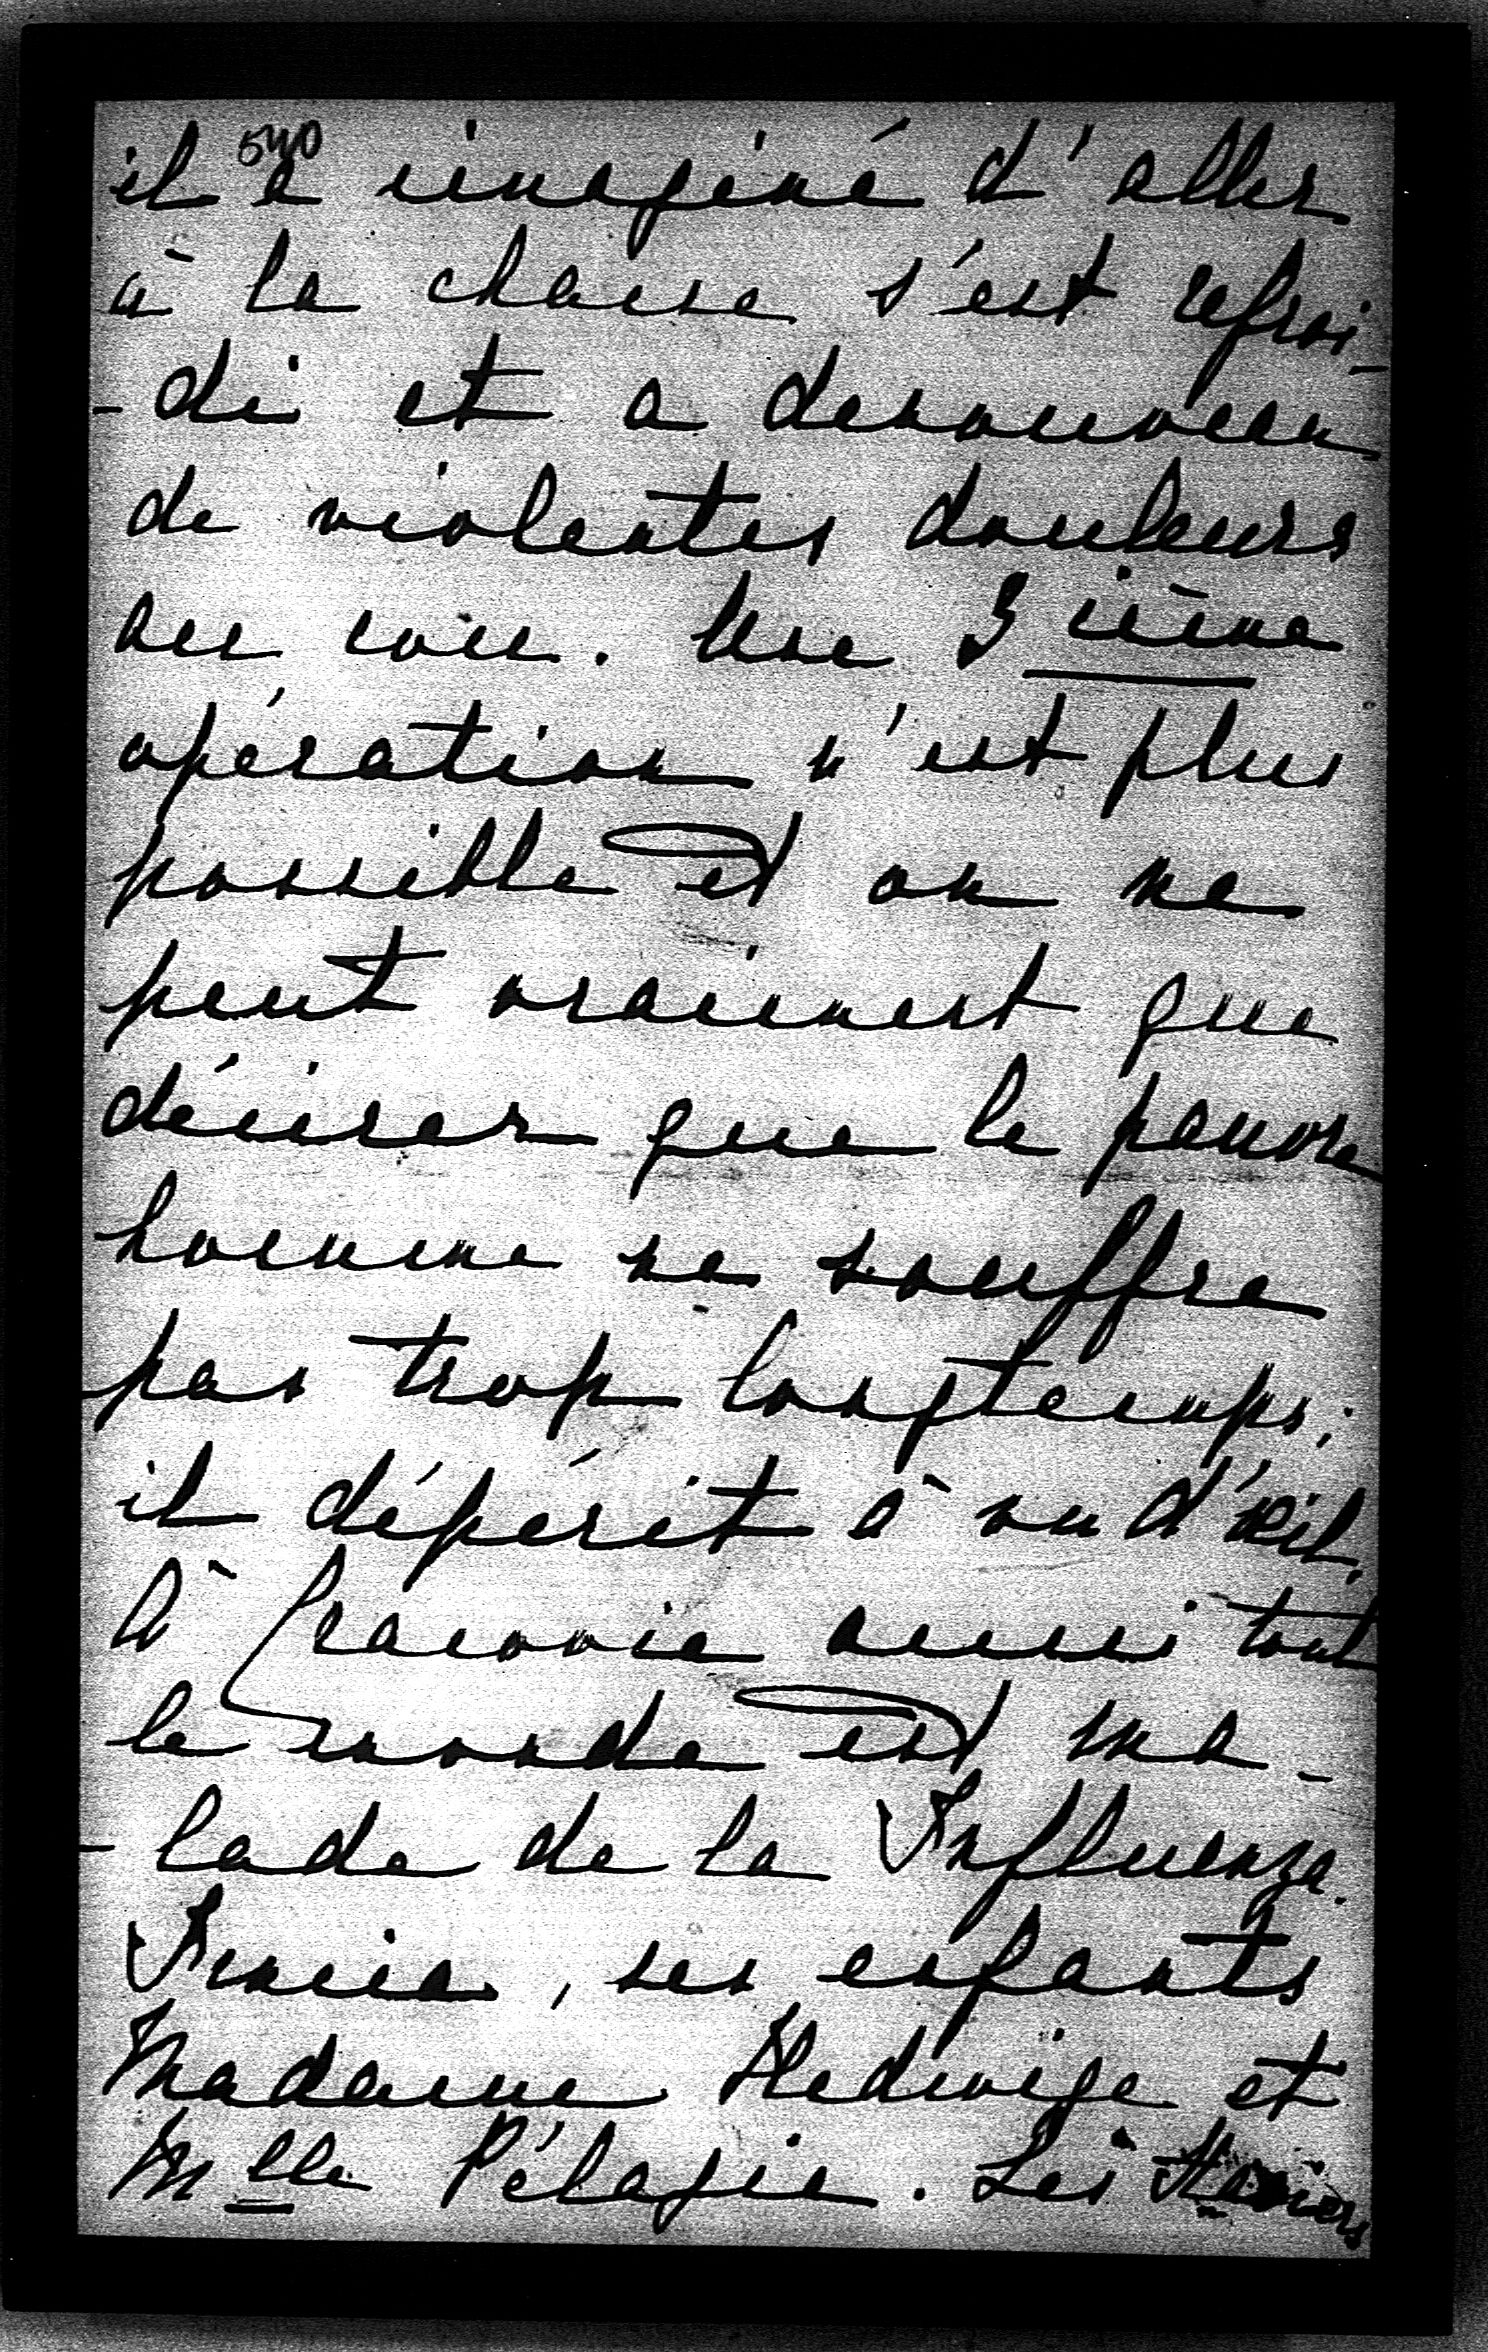 540
il a imaginé d'aller
à la chasse s'est refroi-
-di et a denouveau
de violentes douleurs
au cou. Une 3 ième
opération n'est plus
possible et on ne
peut vraiment que
désirer que le pauvre
homme ne souffre
pas trop longtemps;
il dépérit à vu d'œil.
À Cracovie aussi tout
le monde est ma-
-lade de la Influenza.
Rencia, ses enfants
Madame Hedwige et
Mlle Pélagie. Les